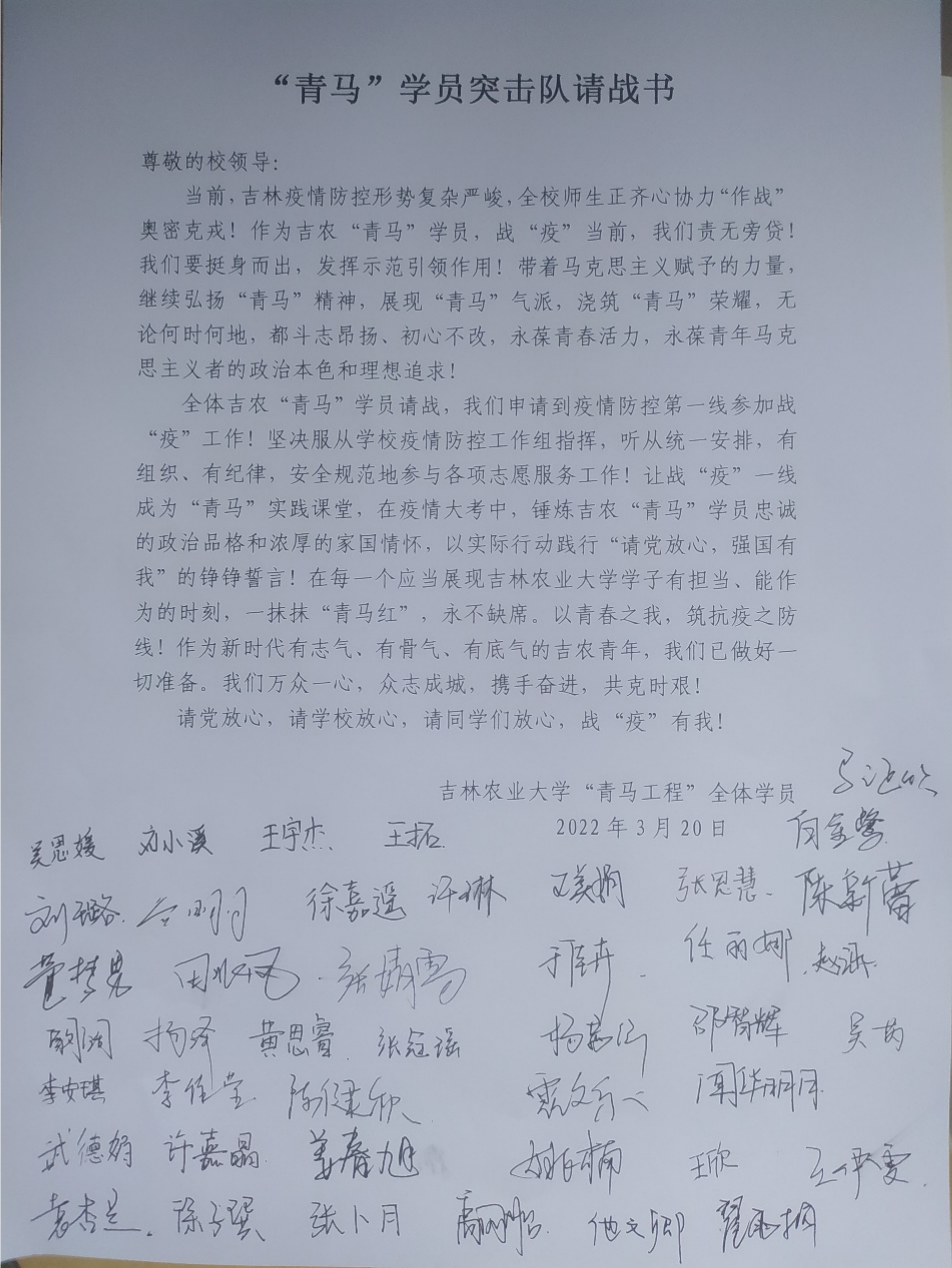 “青马”学员突击队请战书
尊敬的校领导：
当前，吉林疫情防控形势复杂严峻，全校师生正齐心协力“作战”
奥密克戎！作为吉农“青马”学员，战“疫”当前，我们责无旁贷！
我们要挺身而出，发挥示范引领作用！带着马克思主义赋予的力量，
继续弘扬“青马”精神，展现“青马”气派，浇筑“青马”荣耀，无
论何时何地，都斗志昂扬、初心不改，永葆青春活力，永葆青年马克
思主义者的政治本色和理想追求！
全体吉农“青马”学员请战，我们申请到疫情防控第一线参加战
“疫”工作！坚决服从学校疫情防控工作组指挥，听从统一安排，有
组织、有纪律，安全规范地参与各项志愿服务工作！让战“疫”一线
成为“青马”实践课堂，在疫情大考中，锤炼吉农“青马”学员忠诚
的政治品格和浓厚的家国情怀，以实际行动践行“请党放心，强国有
我”的铮铮誓言！在每一个应当展现吉林农业大学学子有担当、能作
为的时刻，一抹抹“青马红”，永不缺席。以青春之我，筑抗疫之防
线！作为新时代有志气、有骨气、有底气的吉农青年，我们已做好一
切准备。我们万众一心，众志成城，携手奋进，共克时艰！
请党放心，请学校放心，请同学们放心，战“疫”有我！
吉林农业大学“青马工程”全体学员
2022年3月20日
吴思媛 刘小溪 王宇杰 王拓
刘璐 徐嘉遥 许琳 张恩慧 陈新蕾
董梦男 张婧雪 任丽娜 赵涵
黄思睿 张冠瑶 邵智辉 吴芮
李安琪 李佳莹
武德娟 许嘉晶 姜春旭 姚楠 王欣 王伊雯
袁杏兰 陈子巽 张卜月